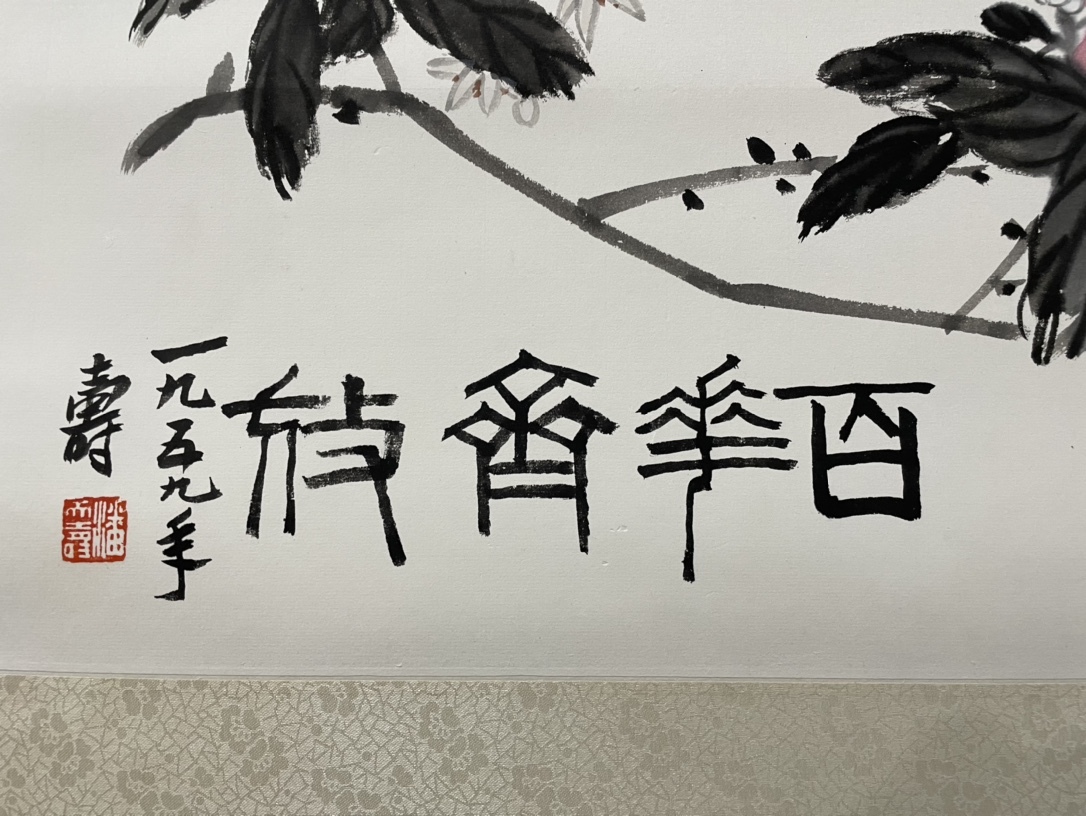 百華齊放
一九五九年
壽
潘天壽